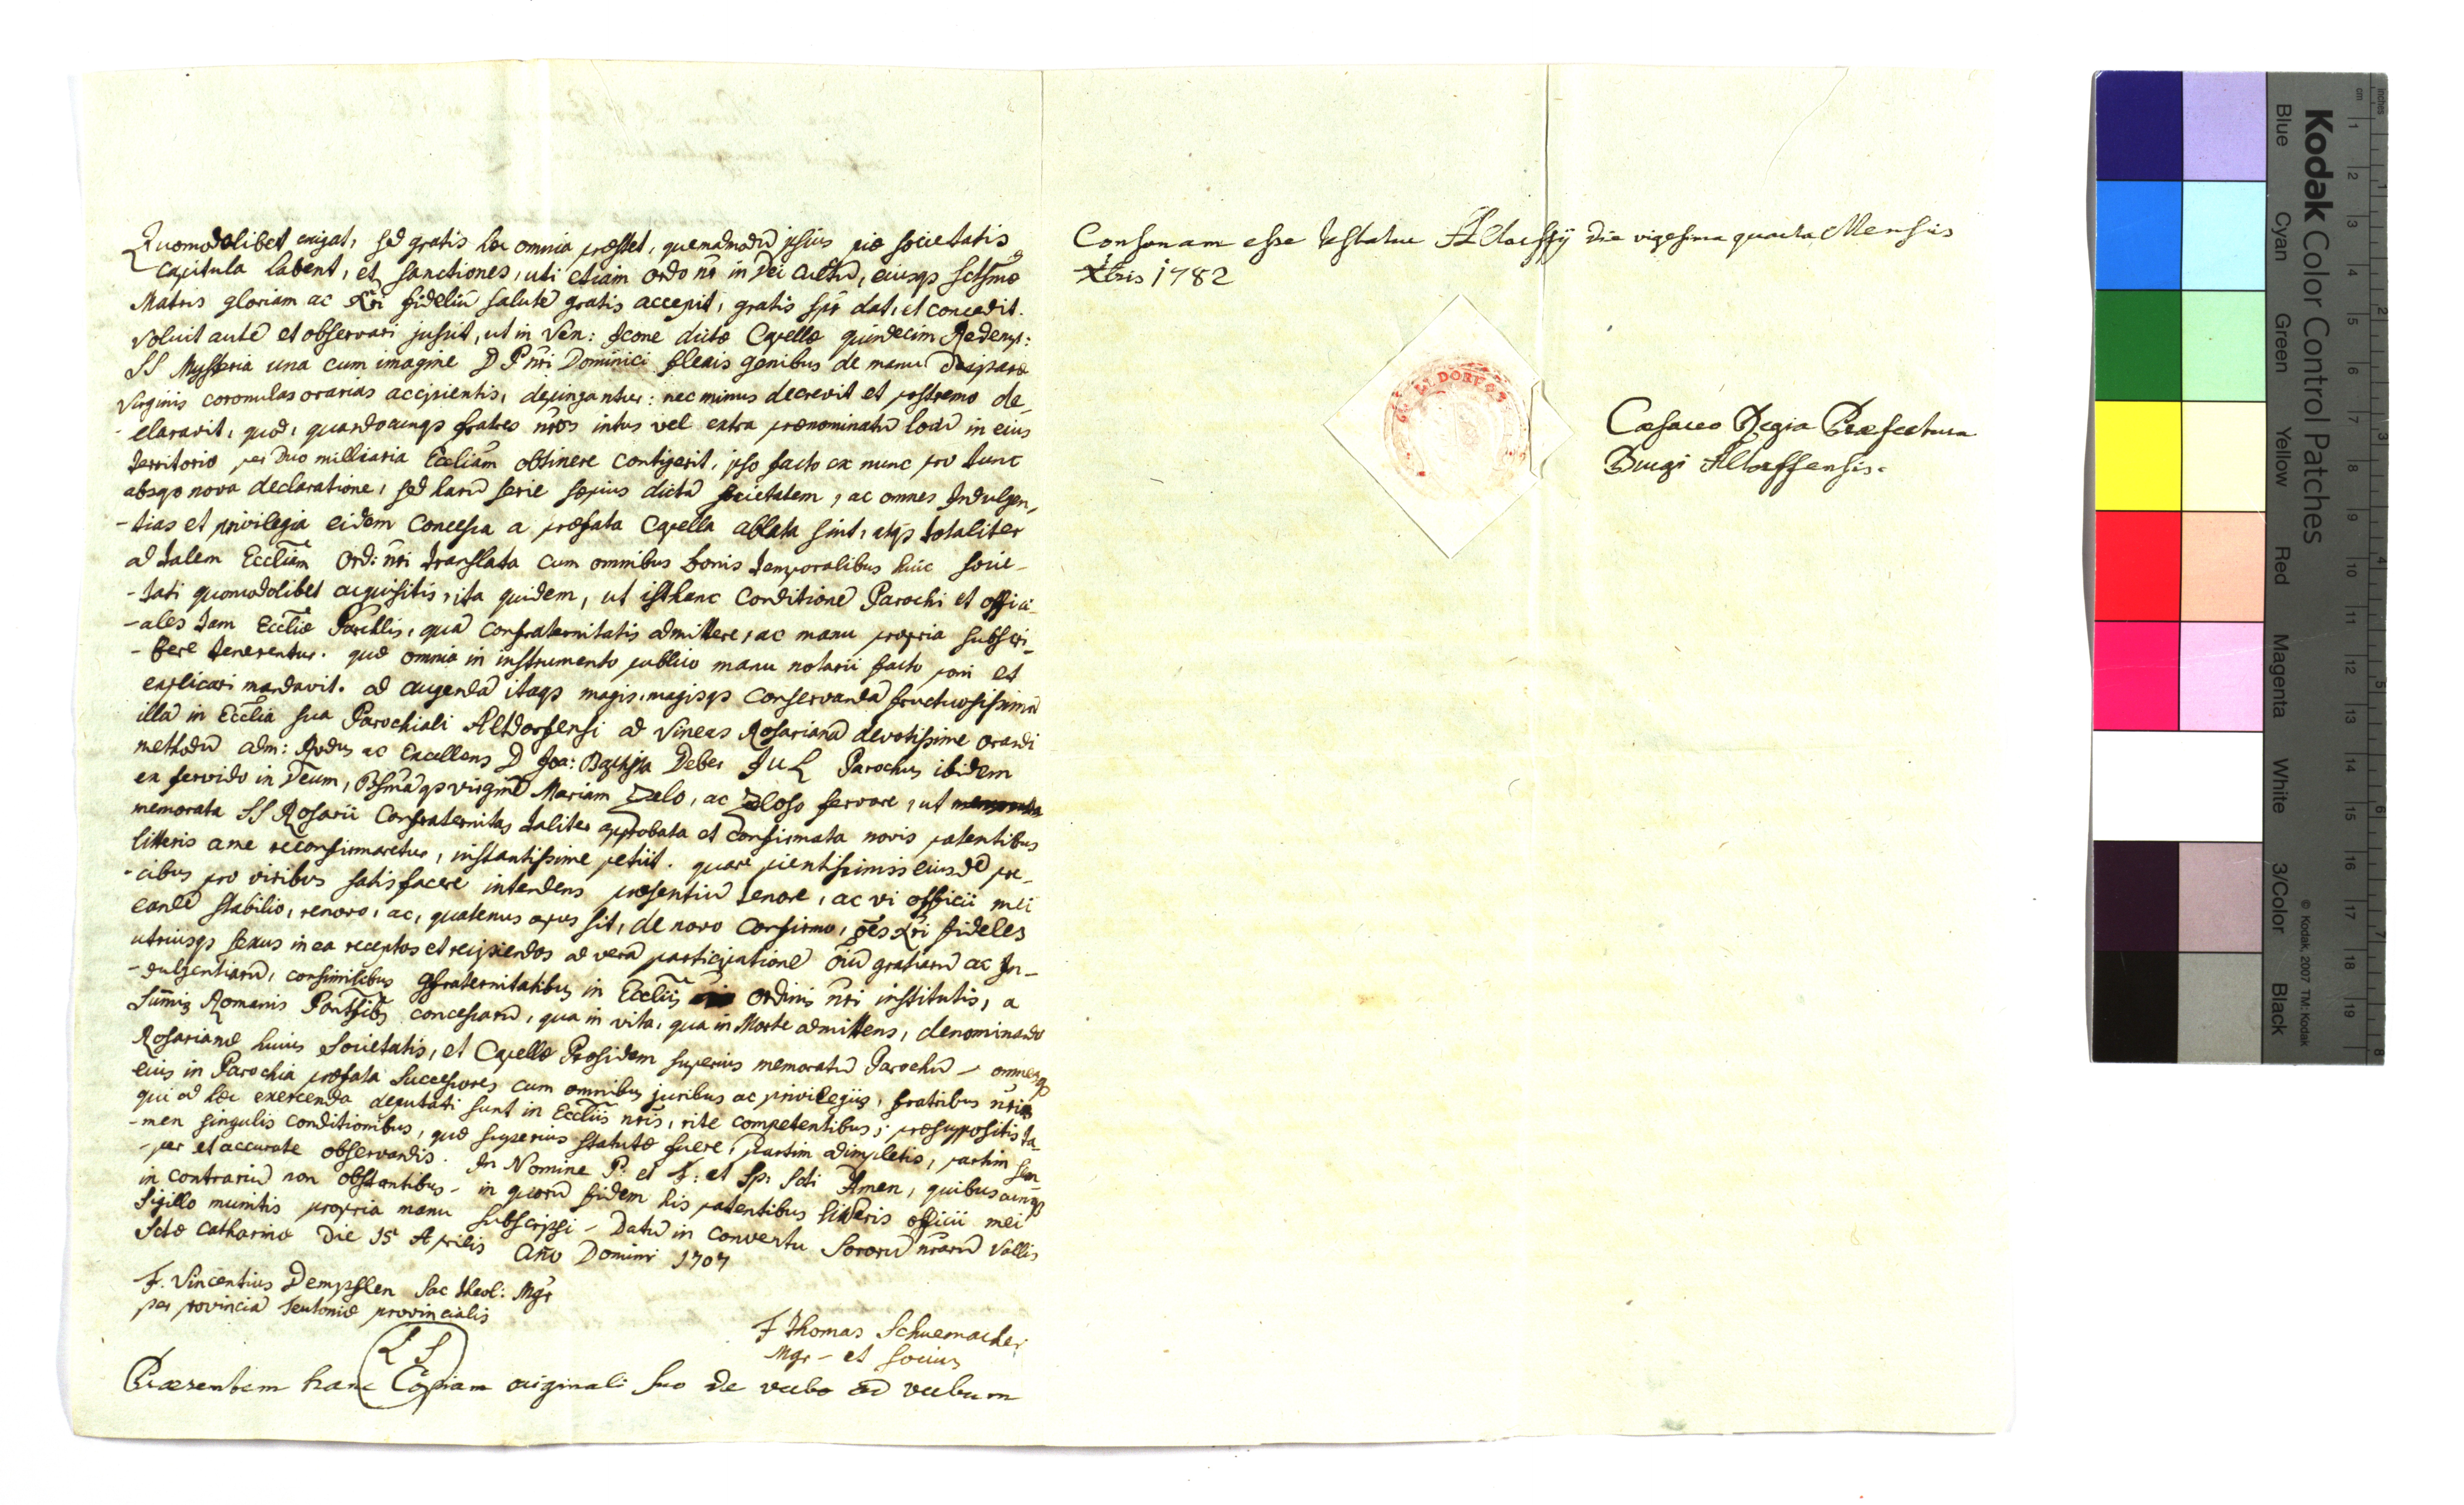 Quomodolibet exigat, sed gratis hæc omnia præstet, quemadmodũ ipsius piæ societatis
capitula habent, et sanctiones, uti etiam ordo nr̃ in Dei cultũ, eiusqs Sctsmæ
Matris gloriam ac Xr̃i fideliũ salutẽ gratis accepit, gratis spr̃ dat, et concedit.
Voluit autẽ et observari jussit, ut in Ven: Icone dictæ Capellæ quindecim Redempt:
SS Mysteria una cum imagine D P nr̃i Dominici flexis genibus de manu Deiparæ
Virginis coronulas orarias accipientis, depingantur: nec minus decrevit et postremo de-
-claravit, quod, quandocunqs fratres nr̃os intus vel extra prænominatũ locũ in eius
territorio per duo milliaria Eccliam obtinere contigerit, ipso facto ex nunc pro tunc
absqs nova declaratione, sed harũ serie sæpius dictã societatem, ac omnes Indulgen-
-tias et privilegia eidem concessa a præfata Capella ablata sint, atqs totaliter
ad talem Eccliam Ord: nr̃i translata cum omnibus bonis temporalibus huic socie-
-tati quomodolibet acquisitis, ita quidem, ut isthanc conditionẽ Parochi et offici-
-ales tam Eccliæ Parchlis, quã confraternitatis admittere, ac manu propria subscri-
-bere tenerentur. quæ omnia in instrumento publico manu notarii facto poni et
explicari mandavit. ad augendã itaqs magis, magisqs conservandã fructuosissimã
illã in Ecclia sua Parochiali Altdorfensi ad Vineas Rosarianã devotissime orandi
methodũ adm: Rvdus ac Excellens D Joa: Baptista Deber JuL Parochus ibidem
ex fervido in Deum, Bsmãqs virginẽ Mariam Zelo, ac Zeloso fervore, ut
memorata SS Rosarii Confraternitas taliter approbata et confirmata novis patentibus
litteris a me reconfirmaretur, instantissime petiit. quare pientissimis eiusdẽ pre-
-cibus pro viribus satisfacere intendens præsentiũ tenore, ac vi officii mei
eandẽ stabilio, renovo, ac, quatenus opus sit, de novo confirmo, oẽs Xr̃i fideles
utriusqs sexus in ea receptos et recipiendos ad verã participationẽ oiũ gratiarũ ac In-
-dulgentiarũ, consimilibus Cfraternitatibus in Eccliis ordinis nr̃i institutis, a
Sum̃is Romanis Pontfibs concessarũ, qua in vita, qua in Morte admittens, denominando
Rosarianæ huius Societatis, et Capellæ Præsidem superius memoratũ Parochũ - omnesqs
eius in Parochia præfata Successores cum omnibus juribus ac privilegiis, fratribus nr̃is
qui ad hæc exercenda deputati sunt in Eccliis nr̃is, rite competentibus; præsuppositis ta-
-men singulis conditionibus, quæ superius statutæ fuere, partim adimpletis, partim sem-
-per et accurate observandis. In Nomine P: et F: et Sp: Scti Amen, quibuscunqs
in contrariũ non obstantibus - in quorũ fidem his patentibus litteris officii mei
Sigillo munitis propria manu subscripsi - Datũ in conventu Sororũ nr̃arũ Vallis
Sctæ Catharinæ Die 15 Aprilis Año Domini 1707
F. Vincentius Dempflen Sac theol: Mgr
per provinciã Teutoniæ provincialis
F Thomas Schuemacher
Mgr - et Socius
L S
Præsentem hanc Copiam originali suo de verbo ad verbum
Consonam esse testatur Altorffÿ die vigesima quarta Mensis
Xbris 1782
Cæsareo Regia Præfectura
Burgi Altorffensis.
LTDORF
Kodak Color Control Patches
Blue Cyan Green Yellow Red Magenta White 3/Color Black
© Kodak, 2007 TM: Kodak
inches 1 2 3 4 5 6 7 8
cm 1 2 3 4 5 6 7 8 9 10 11 12 13 14 15 16 17 18 19